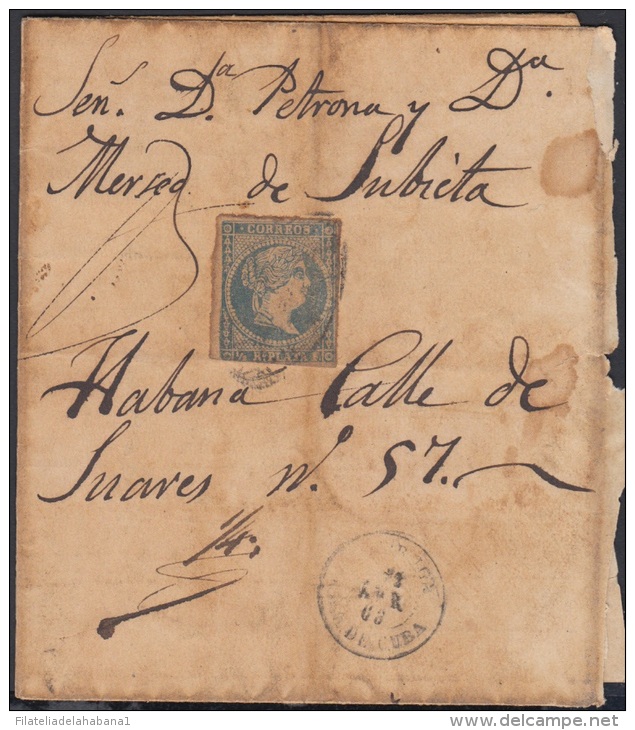 Señ. Dª Petrona y Dª.
Mersed de Subieta
CORREOS
½ Rl. PLATA F.
Habana Calle de
Suares nº. 57.
ABR
DE CUBA
Filateliadelahabana1
www.delcampe.net